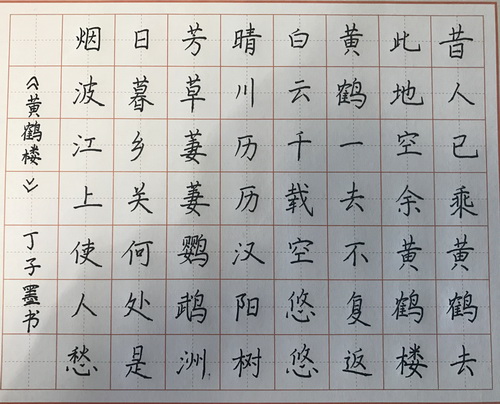 昔人已乘黄鹤去
此地空余黄鹤楼
黄鹤一去不复返
白云千载空悠悠
晴川历历汉阳树
芳草萋萋鹦鹉洲
日暮乡关何处是
烟波江上使人愁
《黄鹤楼》丁子墨书